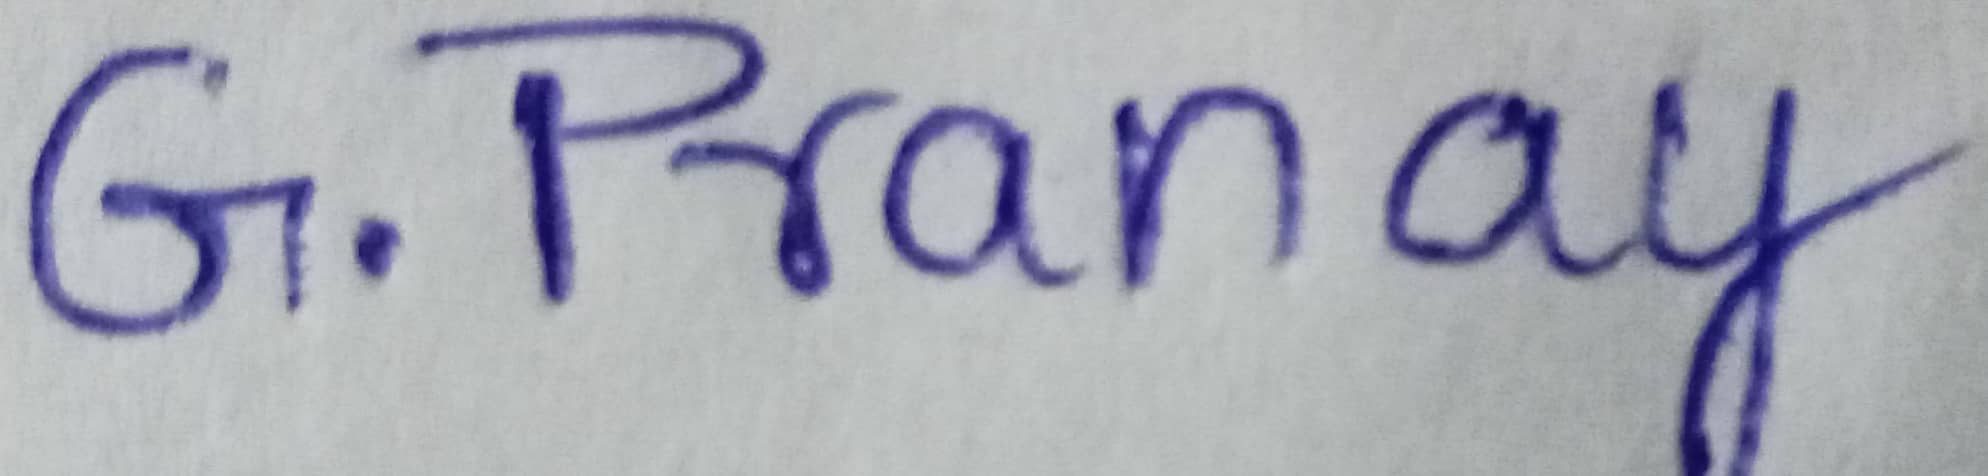 G. Pranay